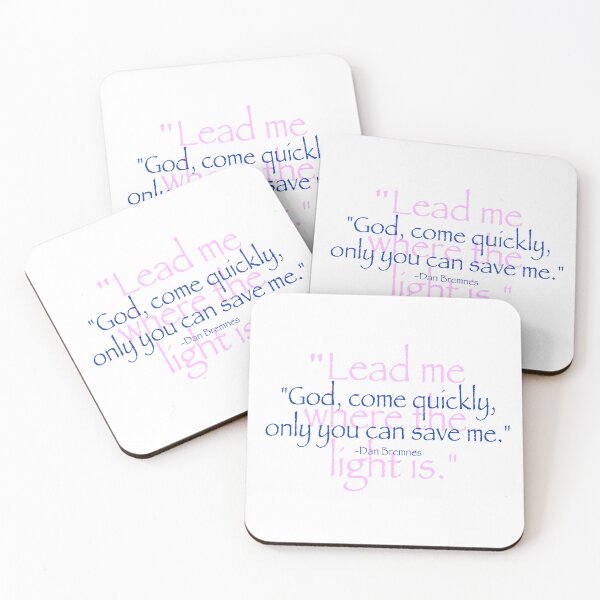 "Lead me
"God, come quickl
where the
only you can save
"Lead me
"God, come quickly,
where the
only you can save me."
-Dan Bremnes
light is."
"Lead me
"God, come quickly,
where the
only you can save me."
-Dan Bremnes
light is."
"Lead me
"God, come quickly,
where the
only you can save me."
-Dan Bremnes
light is."